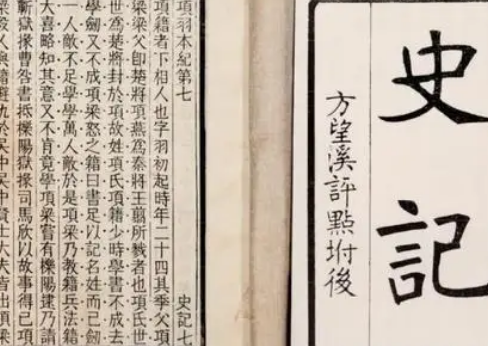 史記
方望溪評點坿後
項羽本紀第七 史記七
項籍者下相人也字羽初起時年二十四其季父項
梁梁父卽楚將項燕爲秦將王翦所戮者也項氏世
世爲楚將封於項故姓項氏項籍少時學書不成去
學劒又不成項梁怒之籍曰書足以記名姓而已劒
一人敵不足學學萬人敵於是項梁乃教籍兵法籍
大喜略知其意又不肯竟學項梁嘗有櫟陽逮乃請
蘄獄掾曹咎書抵櫟陽獄掾司馬欣以故事得已項
梁殺人與籍避仇於吳中吳中賢士大夫皆出項梁